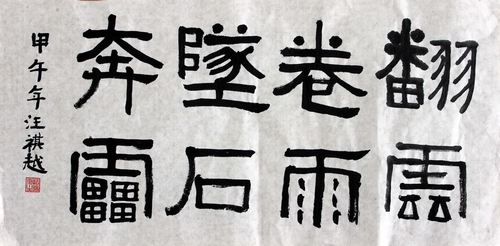 翻雲
卷雨
墜石
奔靁
甲午年汪祺越